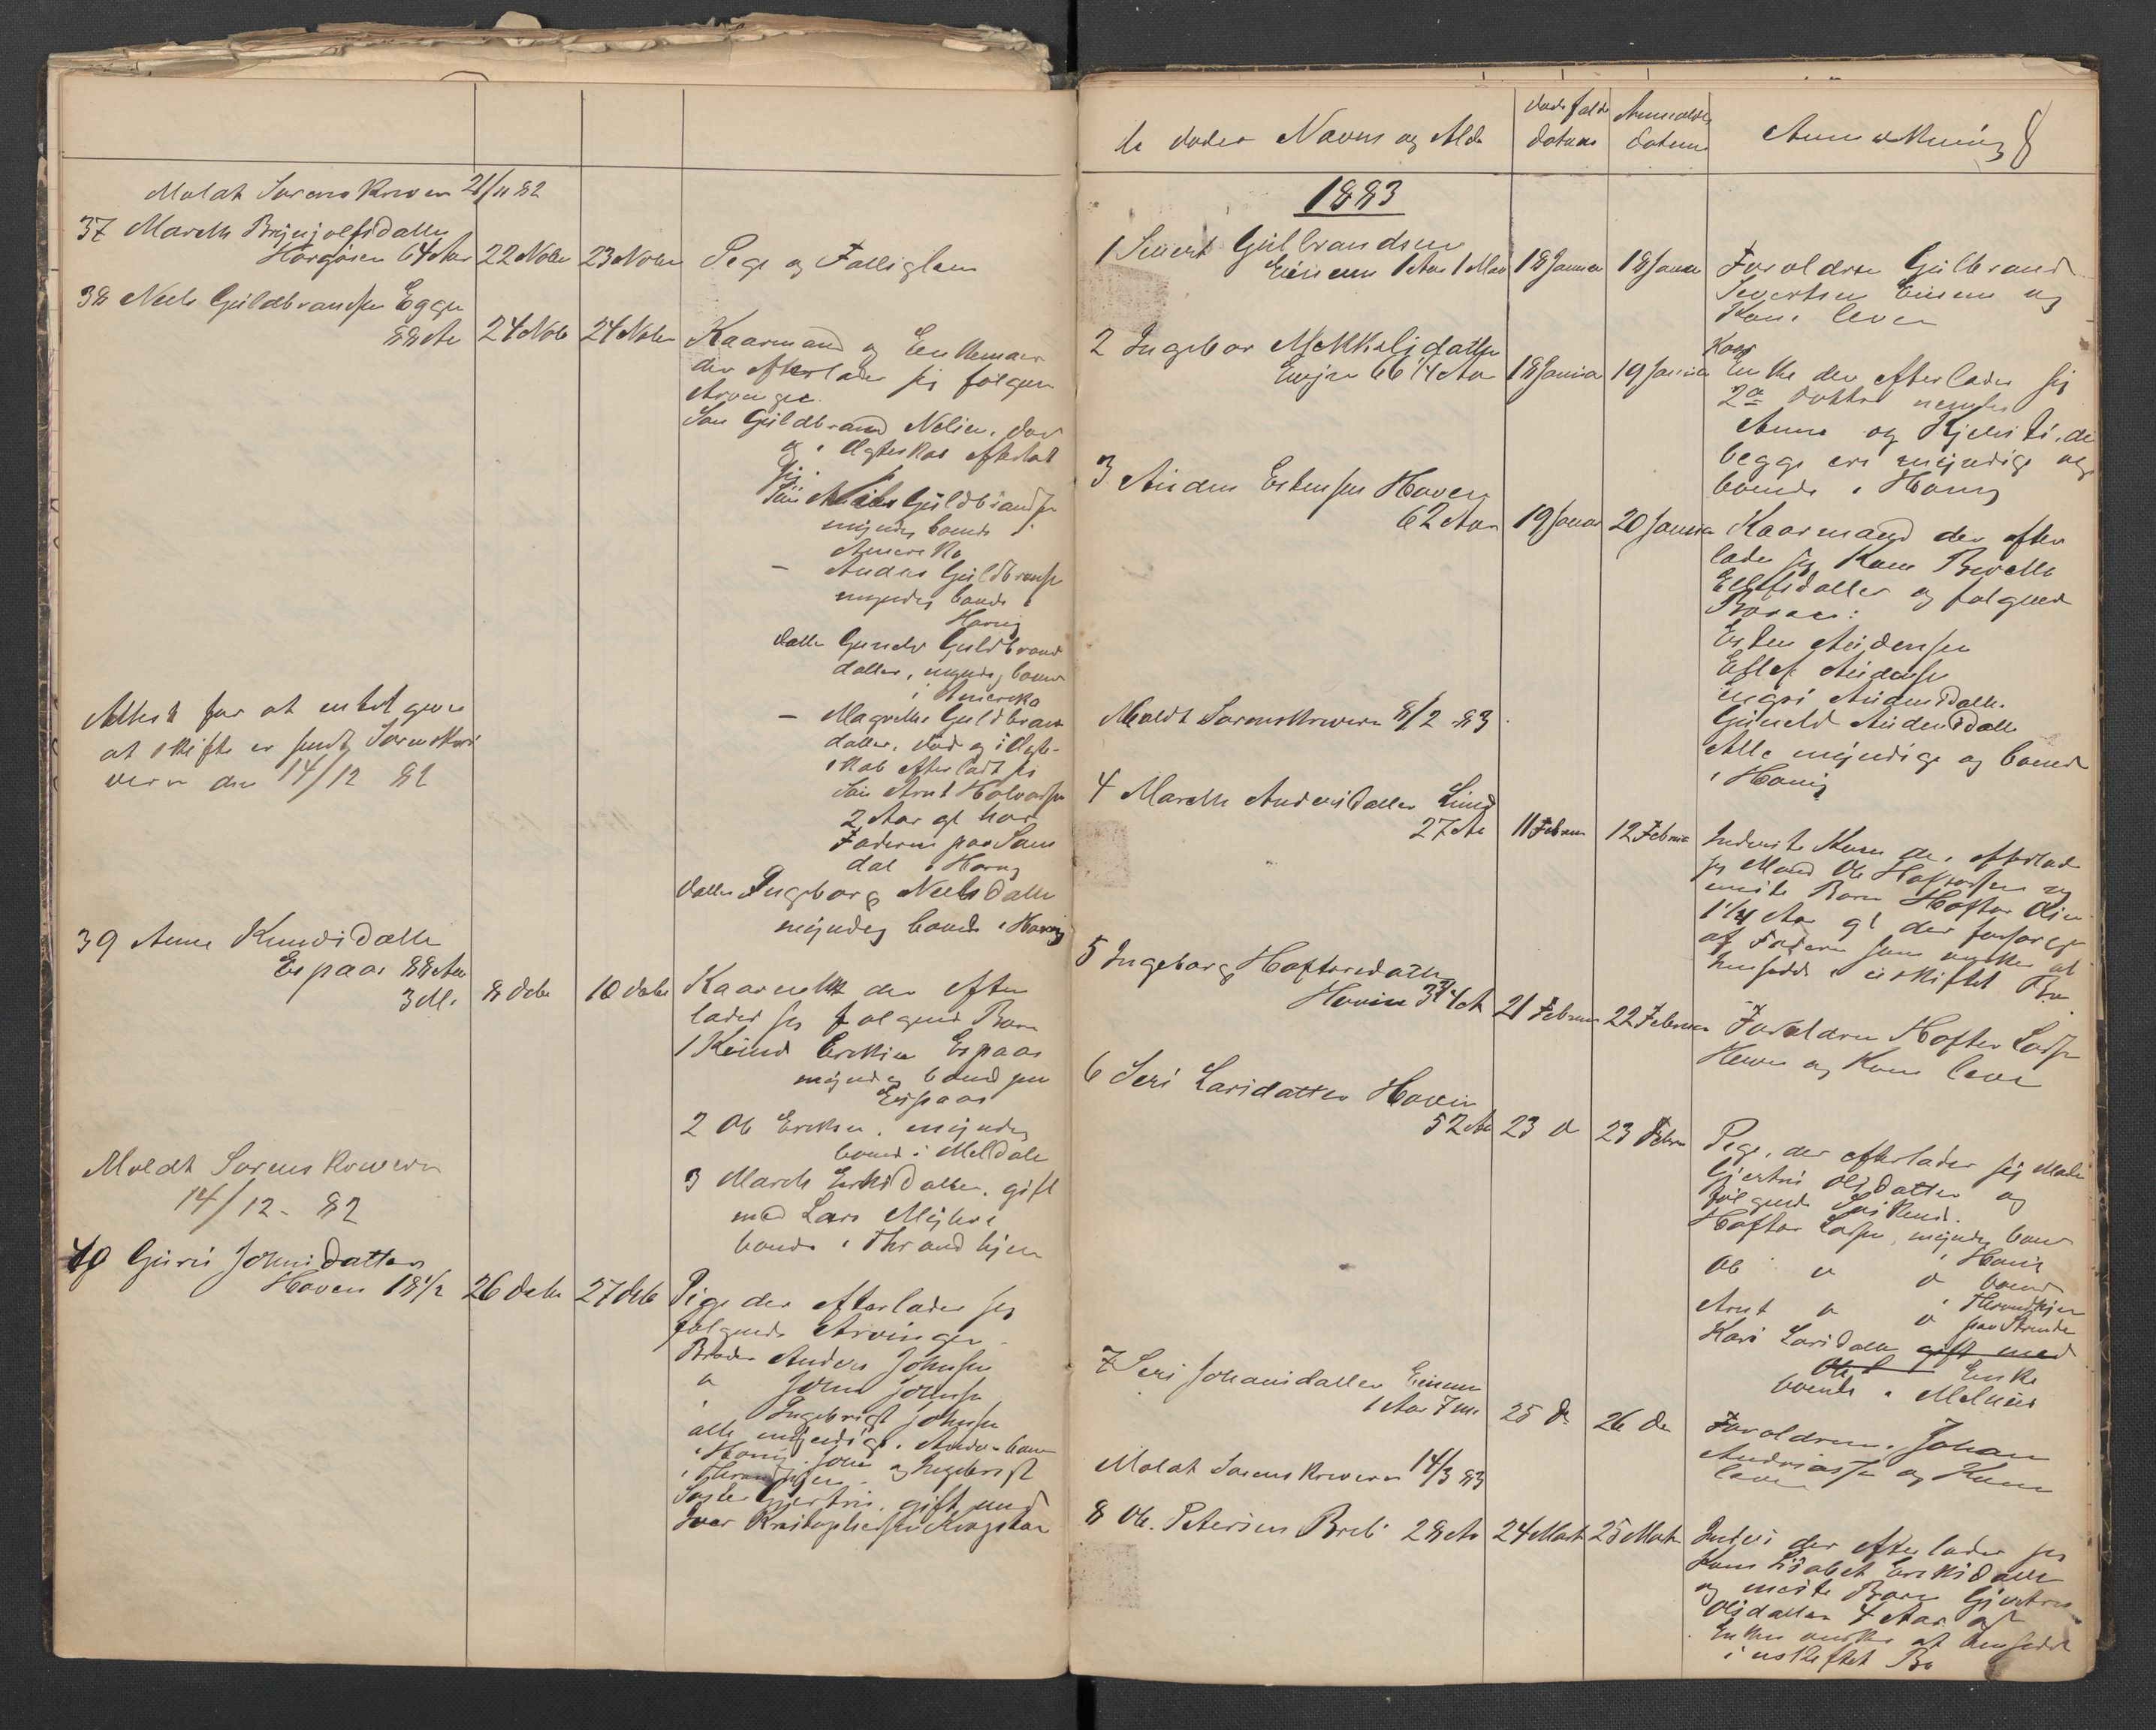 Meldt Sorenskriveren 21/11 82
37 Mareth Brynjolfsdatter
Horgøien 64 Aar 22 Nobr 23 Nobr Pige og Fattiglem
38 Neels Guldbrandsen Eggen
88 Ar 24 Nob 24 Nobr Kaarmand og Enkemand
der efterlader sig følgen
Arvinger
Søn Guldbrand Nelsen, død
og i Ægteskab efterladt
sig
Søn Neels Guldbrands
myndig boende i
Amerika
- Anders Guldbrands
myndig boende i
Horrig
Datter Guneld Guldbrands
datter, myndig boend
i Amerika
- Magrethe Guldbrands
datter, død og i Ægte-
skab efterladt sig
Søn Arnt Halvors
2 Aar gl hos
Faderen paa Sam
dal i Horrig
Datter Ingeborg Neelsdatter
myndig boende i Horrig
Attest for at intet gives
at skifte er sendt Sorenskri
veren den 14/12 82
39 Anne Knudsdatter
Espaas 88 Aar
3 M. 8 Debr 10 Debr Kaarenke der efter
lader sig følgende Børn
1 Knud Ericksen Espaas
myndig boend paa
Espaas
2 Ole Ericksen, myndig
boend i Melldale
3 Mareth Ericksdatter, gift
med Lars Myhre
boende i Thrandhjem
Meldt Sorenskriveren
14/12 - 82
40 Guru Johnsdatter
Hoven 18 1/2 26 Debr 27 Deb Pige der efterlader sig
følgende Arvinger
Broder Anders Johnsen
" John Johnsen
" Ingebrigt Johnsen
alle myndige, Anders boen
i Horrig, John og Ingebrigt
i Thrandhjem
Søster Gjertru, gift med
Iver Kristophersen Krogstad
de dødes Navn og Alder
Dødsfalds datum
Anmeldels datum
Anmærkning 8
1883
1 Sivert Gulbrandsen
Eineem 1 Aar 1 Maa 18 Januar 18 Januar Forældre Gulbrand
Sivertsen Eineem og
Kone lever
2 Ingebor Mikkelsdatter
66 1/4 Aar 18 Januar 19 Januar Kaar
Enke der efterlader sig
2de Døttre nemlig
Anne og Kjersti, de
begge ere myndige og
boende i Horrig
3 Auden Estensen Hoven
62 Aar 19 Januar 20 Januar Kaarmand der efter
lader sig Kone Berethe
Ellefsdatter og følgende
Børn:
Esten Audensen
Ellef Audensen
Ingri Audensdatter
Guneld Audensdatter
Alle myndige og boende
i Horrig
Meldt Sorenskriveren 8/2 - 83
4 Mareth Andersdatter Lund
27 Ar 11 Februar 12 Februar Inderste Kone der efterlader
sig Mand Ole Haftorsen og
eneste Barn Haftor Olsen
1 1/4 Aar gl der forsørges
af Faderen som ønsker at
hensidde i uskiftet Bo
5 Ingeborg Haftorsdatter
Hovin 3 3/4 A 21 Februar 22 Februar Forældren Haftor Lars
Hoven og Kone lever
6 Seri Larsdatter Hovin
52 Ar 23 d 23 Febru Pige, der efterlader sig Moder
Gjertru Olsdatter og
følgende Søskend.
Haftor Larsen, myndig boen
i Horrig
Ole " d boend
i Throndhjem
Arnt " d paa Strinde
Kari Larsdatter gift med
Ole L Enke
boende i Melhus
7 Seri Johansdatter Eineem
1 Aar 7 M 25 d 26 de Forældrene Johan
Andreassen og Kone
lever
Meldt Sorenskriveren 14/3 83
8 Ole Petersen Brek 28 Ar 24 Marts 25 Marts Inders der efterlader sig
Kone Lisabet Ericksdatter
og eneste Barn Gjertru
Olsdatter 4 Aar gl
Enken ønsker at hensidde
i uskiftet Bo